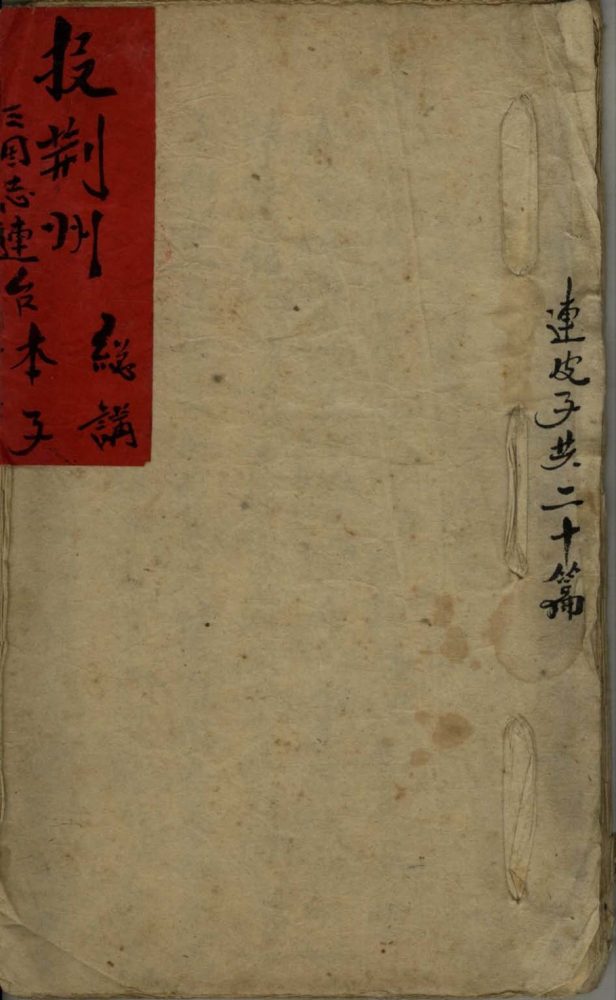 連皮子共二十篇
投荆州 総講
三國志連台本子